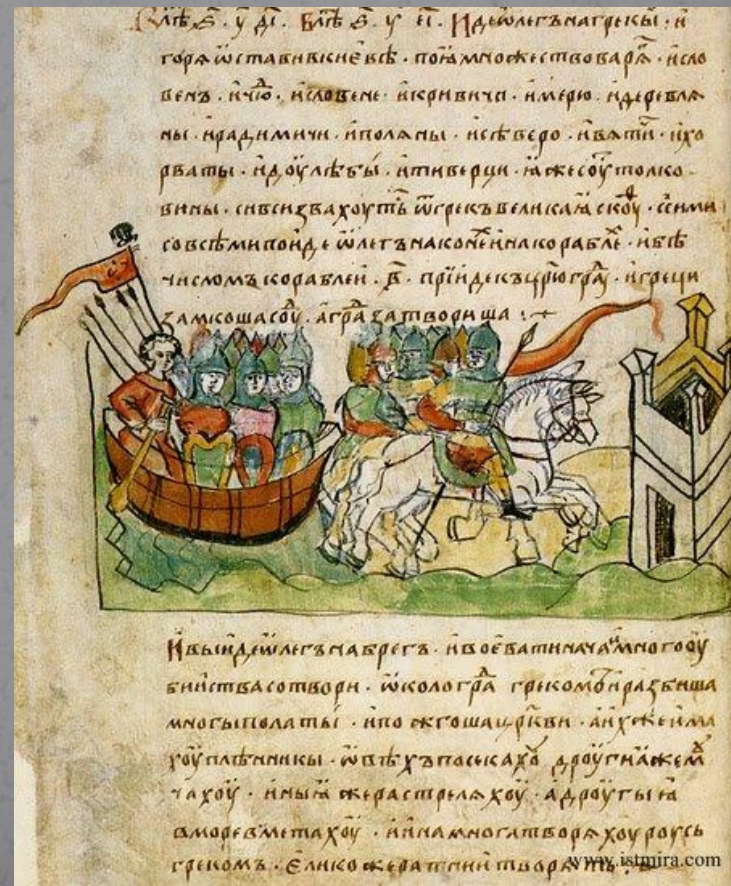 В лѣⷮ ҂ѕ҃ . у ді . В лѣⷮ ҂ѕ҃ . у еі . Иде ѡлегъ на грекы . и
горѧ ѡставив киевѣ . поѧ множество варѧ . и сло
венъ . и чю . и словене . и кривичи . и мерю . и деревлѧ
ны . и радимичи . и полѧны . и сѣверо . и вѧтичи . и хо
рваты . и доулѣбы . и тиверци . ꙗже соуть толко
вины . си вси звахоуть ѿ грекъ великаꙗ скоуⷴ . с сими
со всѣми поиде ѡлегъ на конеи и на кораблеⷯ . и бѣ
числомъ кораблеи . в҃ . приіде къ црюграⷣ . и греци
замкоша соуⷣ . а граⷣ затвориша :
И выиде ѡлегъ на брегъ . и воевати нача и много оу
биіства сотвори . ѡколо граⷣ грекомъ и разбиша
многы полаты . и пожгоша цркви . а ихже има
хоу плѣнникы . ѡвѣхъ посекахоу дроугиꙗ же мⷱ
чахоу . иныꙗ же растрелѧхоу . а дроугыꙗ
в море вметахоу . и ина многа творѧхоу роусь
грекомъ . елико же ратнии творѧть
www.istmira.com